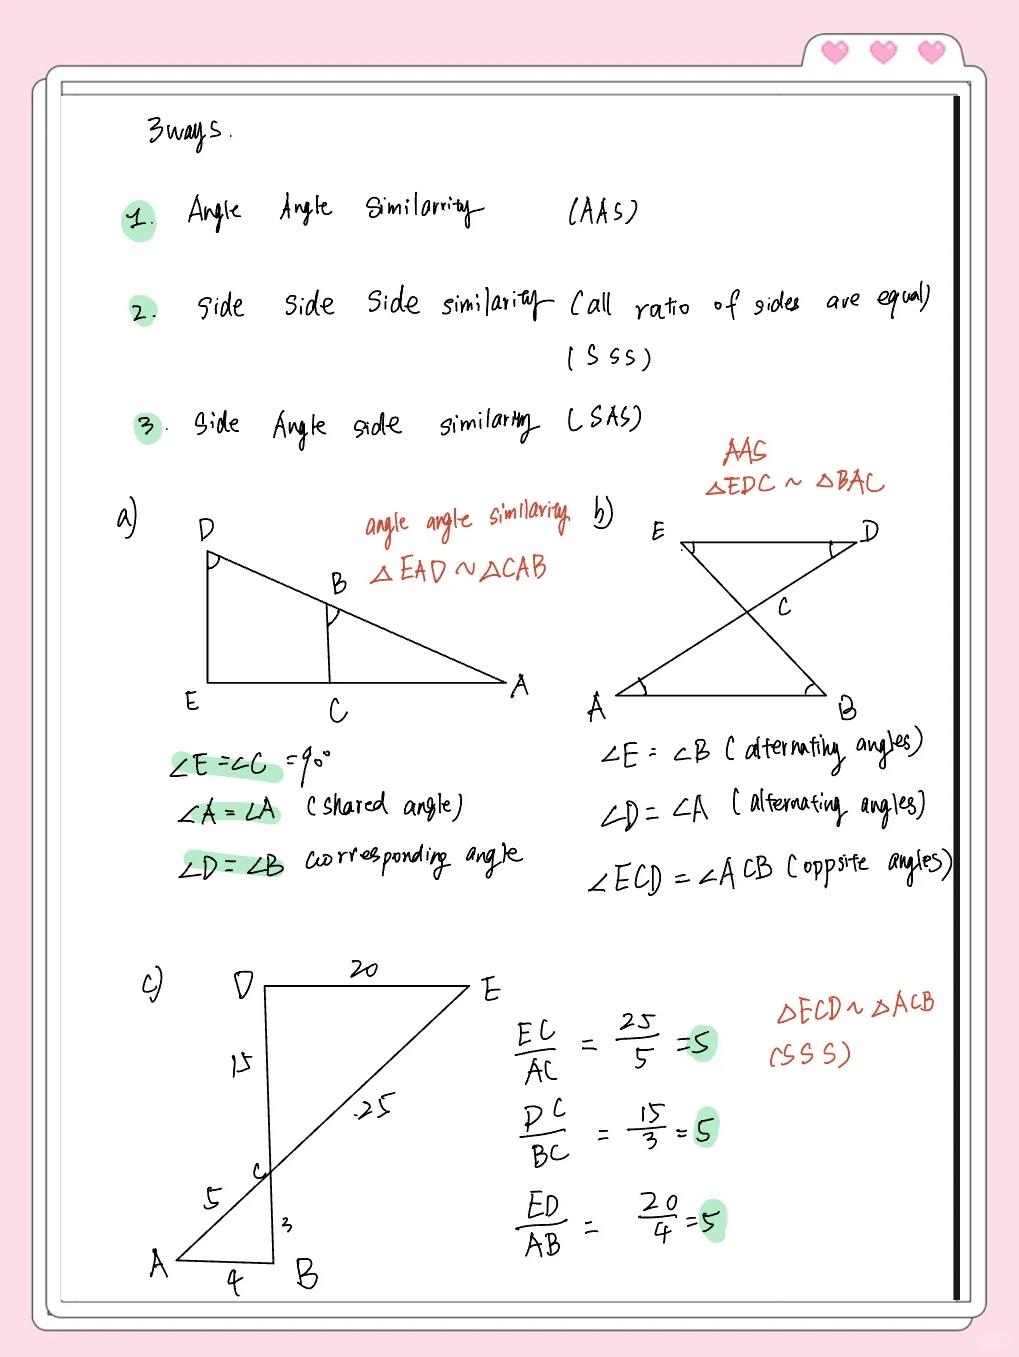 3 ways.
1. Angle Angle Similarrity (AAS)
2. Side Side Side similarity (all ratio of sides are equal)
(SSS)
3. Side Angle side similarity (SAS)
a)
angle angle similarity
△EAD ~ △CAB
D
B
E
C
A
∠E = ∠C = 90°
∠A = ∠A (shared angle)
∠D = ∠B corresponding angle
b)
AAS
△EDC ~ △BAC
E
D
C
A
B
∠E = ∠B (alternating angles)
∠D = ∠A (alternating angles)
∠ECD = ∠ACB (oppsite angles)
c)
D
20
E
15
25
C
5
3
A
4
B
EC/AC = 25/5 = 5
DC/BC = 15/3 = 5
ED/AB = 20/4 = 5
△ECD ~ △ACB
(SSS)